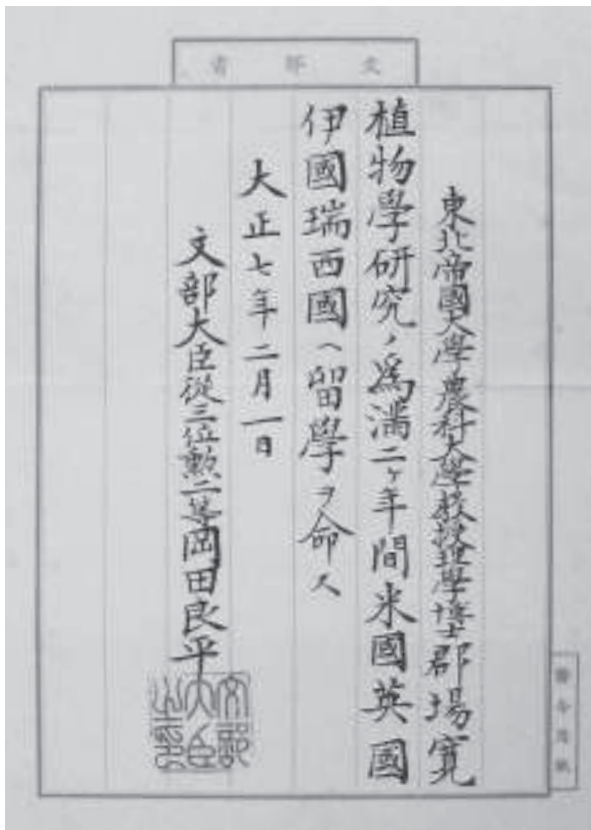 文部省
東北帝國大學農科大學教授理學博士郡場寛
植物學研究ノ爲滿二ヶ年間米國英國
伊國瑞西國ヘ留學ヲ命ス
大正七年二月一日
文部大臣從三位勲二等岡田良平
文部大臣之印